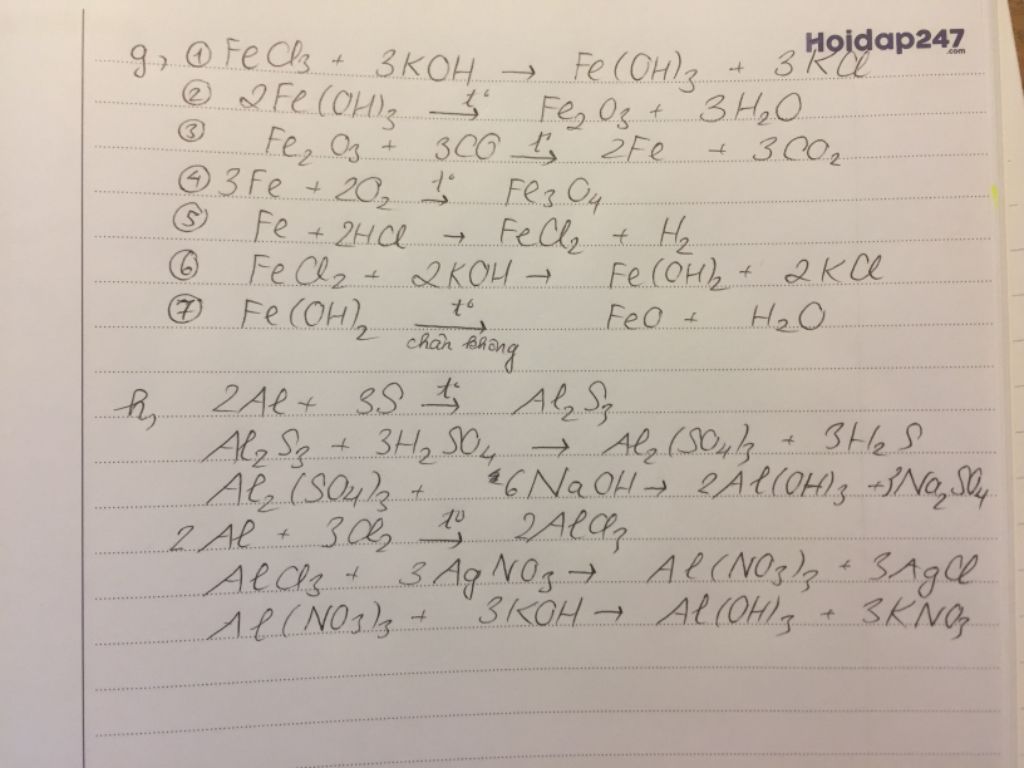 Hoidap247
.com
g, ① FeCl₃ + 3KOH → Fe(OH)₃ + 3KCl
② 2Fe(OH)₃ →(t°) Fe₂O₃ + 3H₂O
③ Fe₂O₃ + 3CO →(t°) 2Fe + 3CO₂
④ 3Fe + 2O₂ →(t°) Fe₃O₄
⑤ Fe + 2HCl → FeCl₂ + H₂
⑥ FeCl₂ + 2KOH → Fe(OH)₂ + 2KCl
⑦ Fe(OH)₂ →(t°) FeO + H₂O
chân không
h, 2Al + 3S →(t°) Al₂S₃
Al₂S₃ + 3H₂SO₄ → Al₂(SO₄)₃ + 3H₂S
Al₂(SO₄)₃ + 6NaOH → 2Al(OH)₃ + 3Na₂SO₄
2Al + 3Cl₂ →(t°) 2AlCl₃
AlCl₃ + 3AgNO₃ → Al(NO₃)₃ + 3AgCl
Al(NO₃)₃ + 3KOH → Al(OH)₃ + 3KNO₃